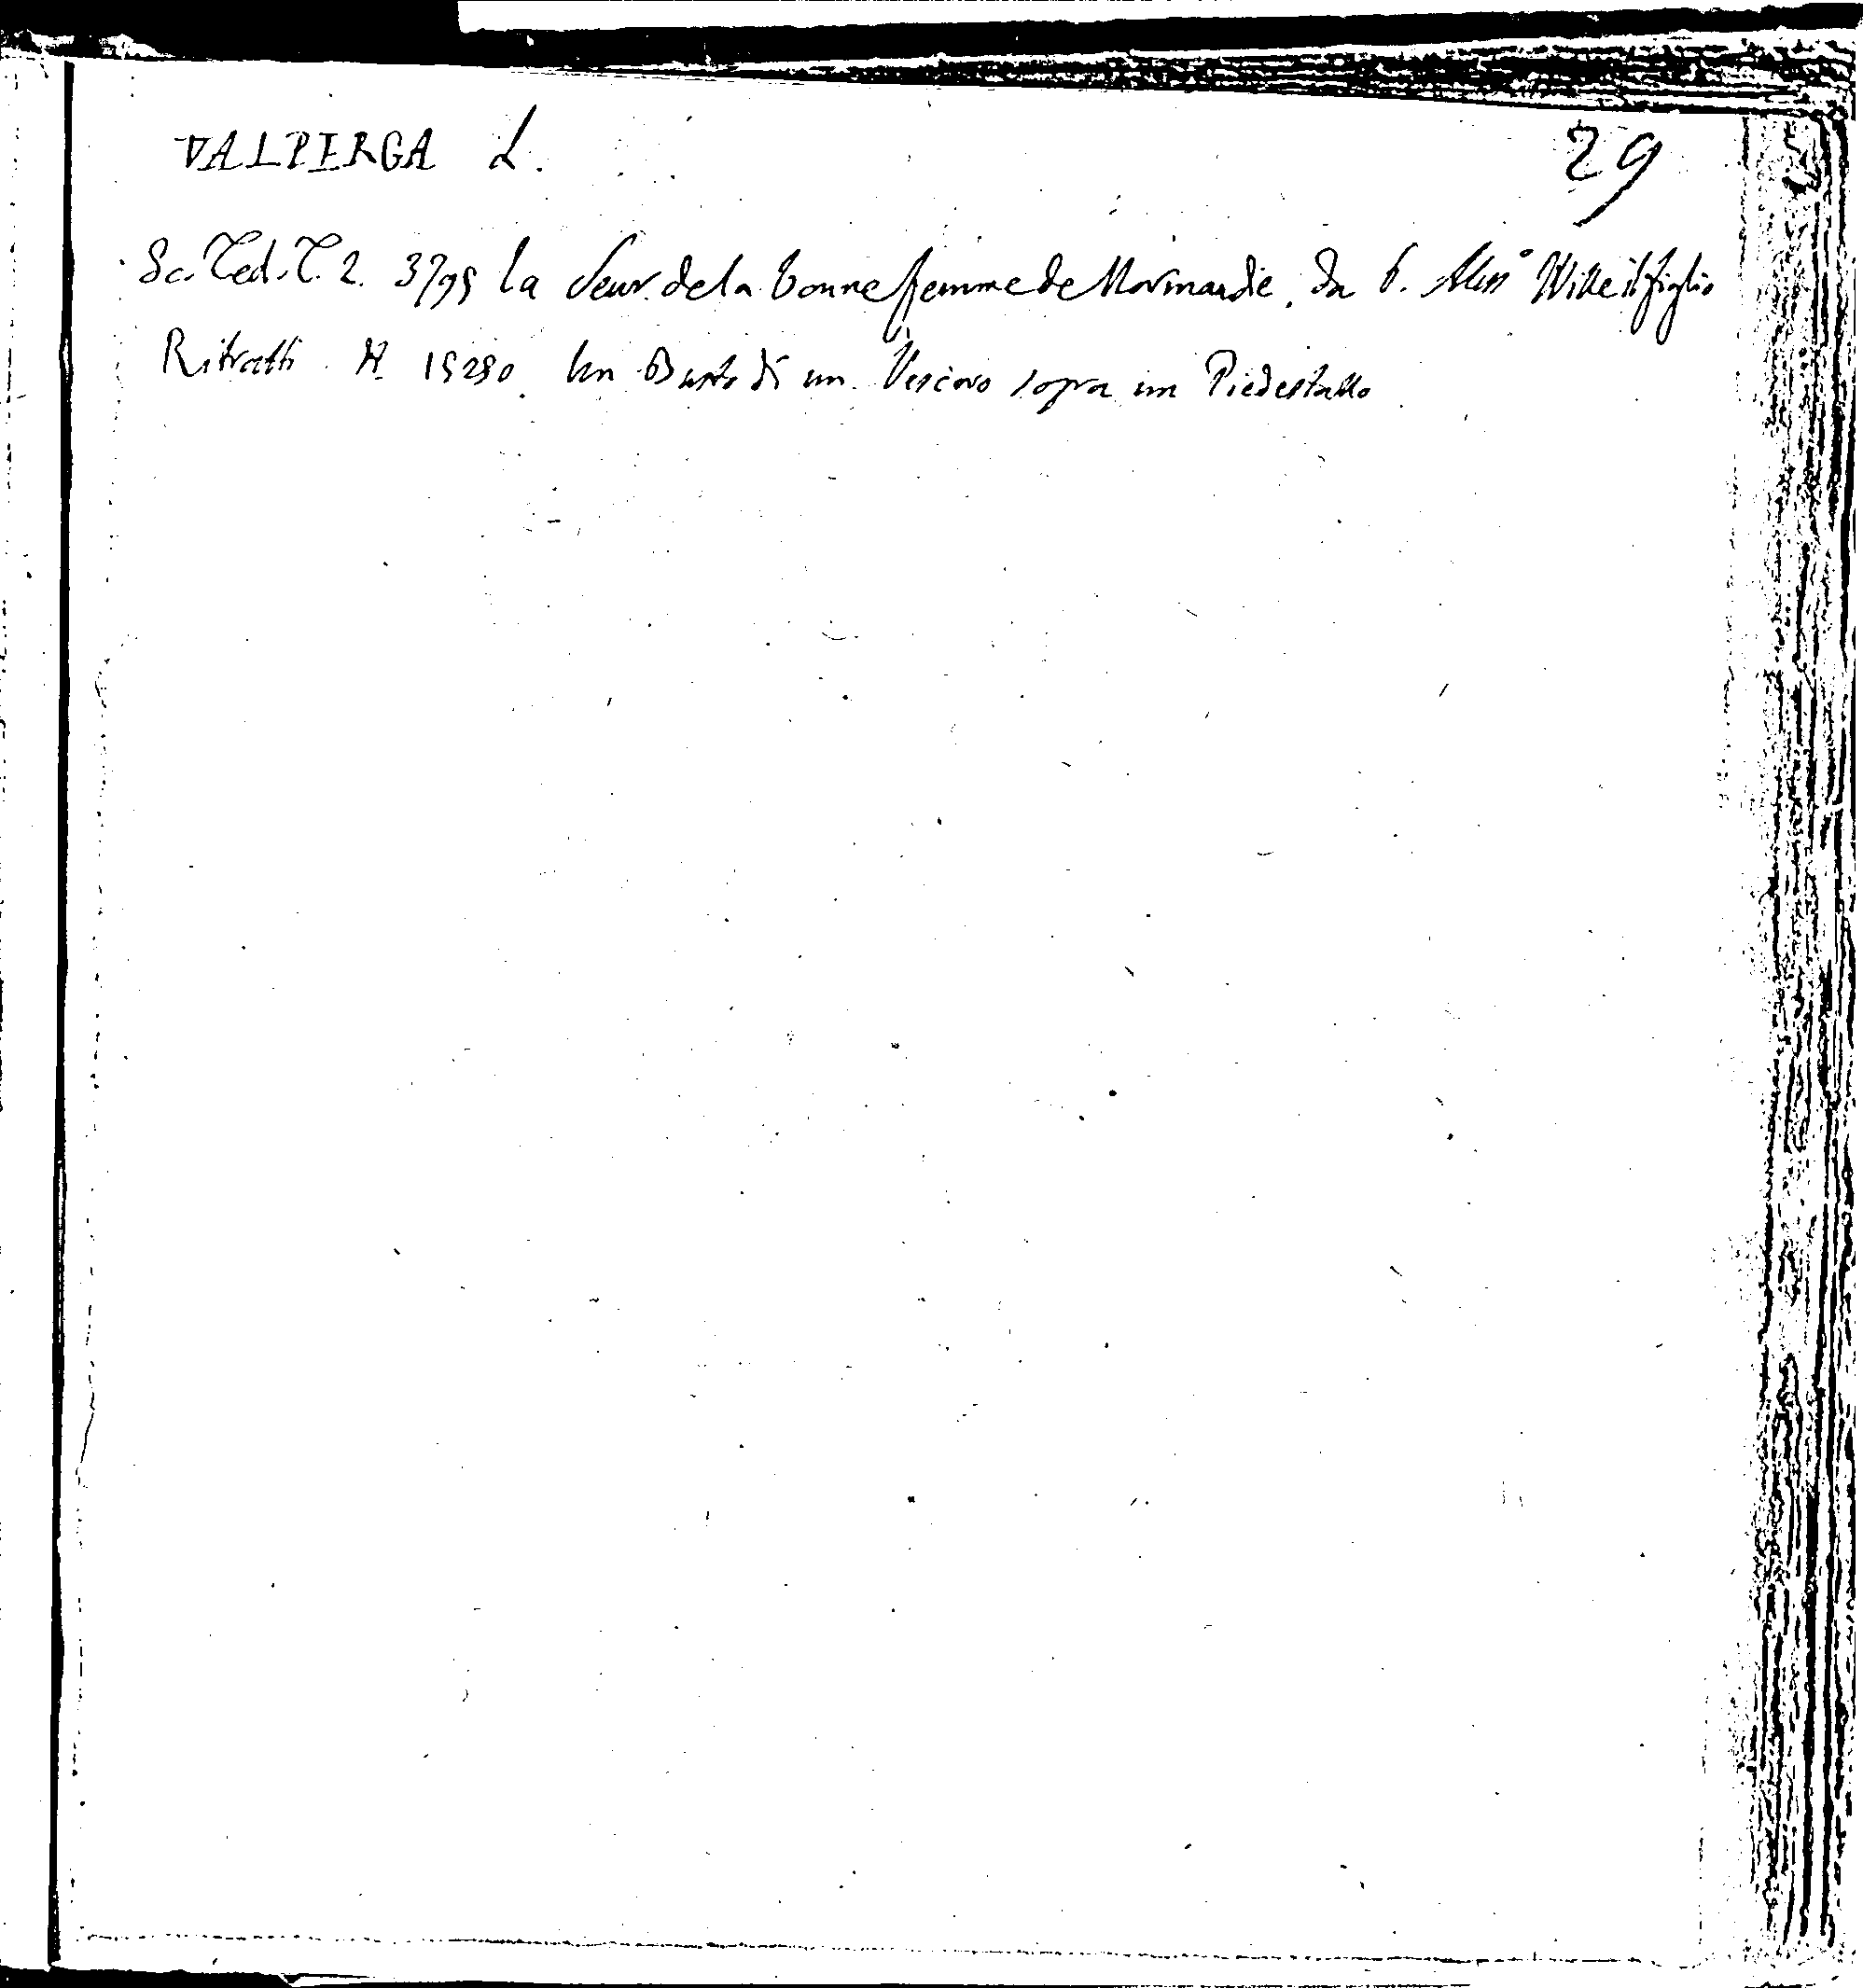 VALPERGA L. 29
Sc. Ted. T. 2. 3795 la Seur de la bonne femme de Normandie, da Wille il figlio
Ritratti 15290 Un Busto di un Vescovo sopra un Piedestallo